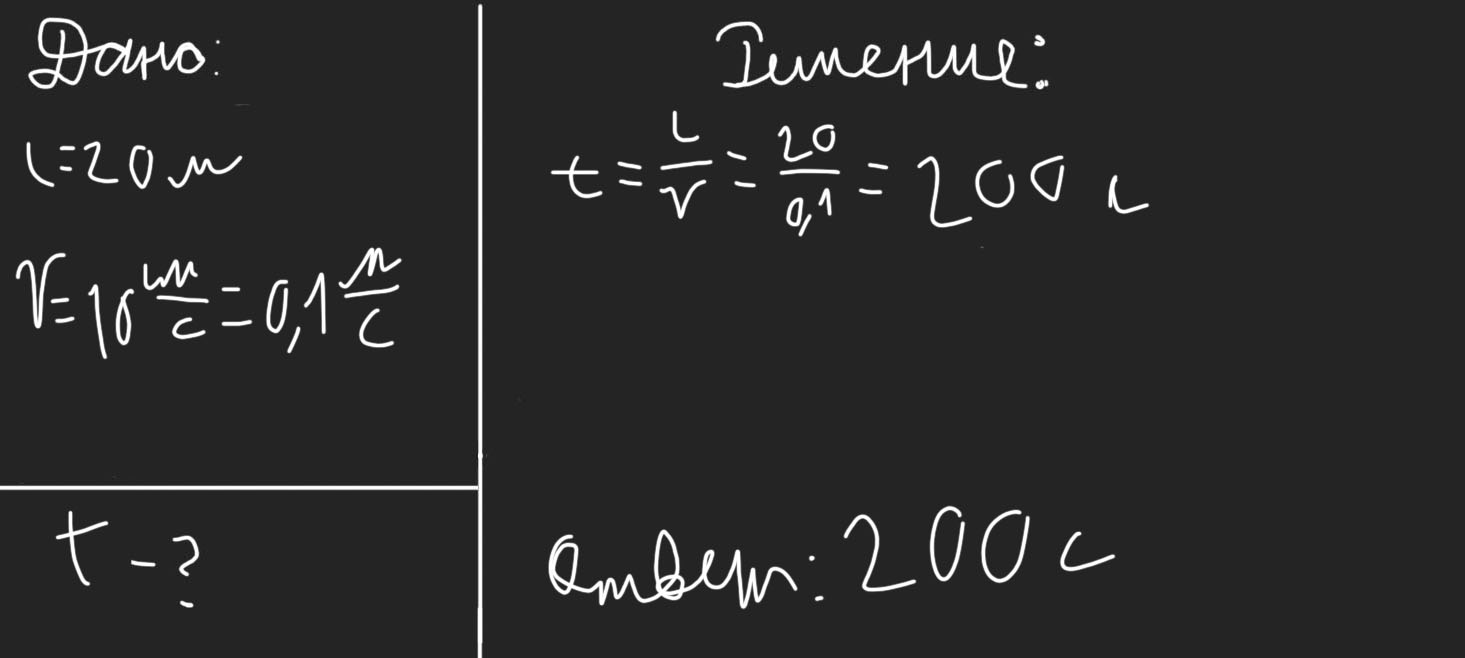 Дано:
L=20 м
V=10 см/с=0,1 м/с
t-?
Решение:
t=L/V=20/0,1=200 с
Ответ: 200 с